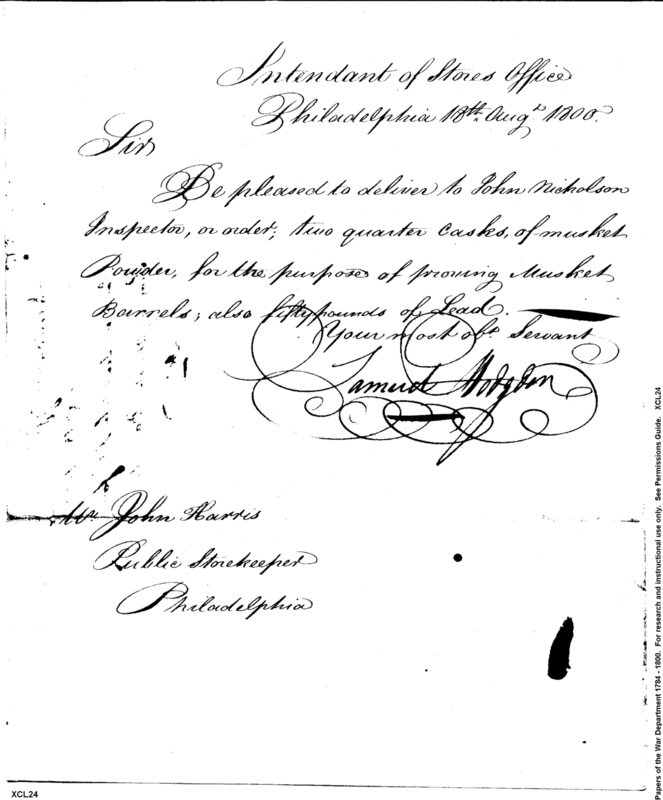 Intendant of Stores Office
Philadelphia 18th. Augt. 1800.
Sir
Be pleased to deliver to John Nicholson
Inspector, or order, two quarter casks, of musket
Powder, for the purpose of proving Musket
Barrels; also fifty pounds of Lead.
Your most obt. Servant
Samuel Hodgdon
Mr. John Harris
Public Storekeeper
Philadelphia
Papers of the War Department 1784 - 1800. For research and instructional use only. See Permissions Guide. XCL24
XCL24